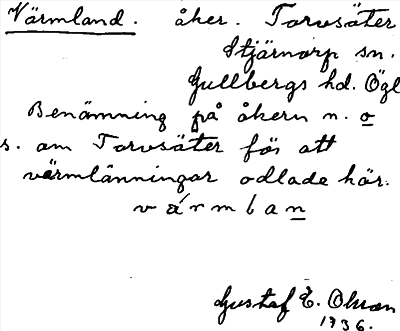 Värmland. åker. Torvsäter
Stjärnorp sn.
Gullbergs hd. Ögl
Benämning på åkern n. o
s. om Torvsäter för att
värmlänningar odlade här.
v á r m l a n
Gustaf E. Olsson
1936.